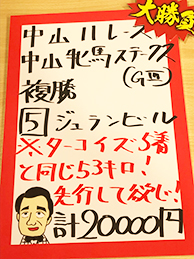 大勝写
中山11レース
中山牝馬ステークス
(GⅢ)
複勝
5 ジュランビル
※ターコイズ5着
と同じ53キロ!
先行して欲しい!
計20000円